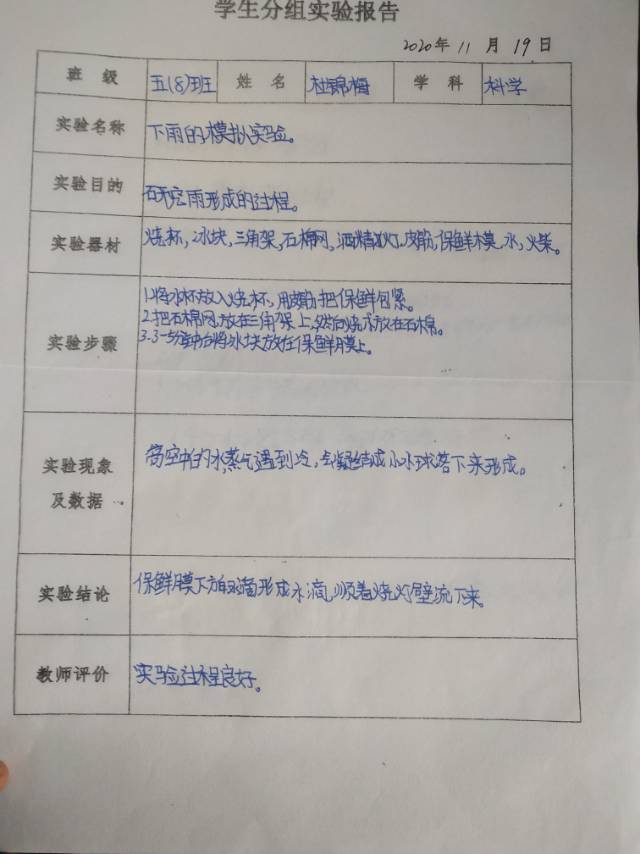 学生分组实验报告
2020年 11 月 19 日
班 级 五(8)班 姓 名 杜锦梅 学 科 科学
实验名称 下雨的模拟实验。
实验目的 研究雨形成的过程。
实验器材 烧杯,冰块,三角架,石棉网,酒精灯,皮筋,保鲜膜,水,火柴。
实验步骤
1.将水杯放入烧杯,用皮筋把保鲜包紧。
2.把石棉网放在三角架上,然后烧放在石棉。
3.3-5分钟将冰块放在保鲜膜上。
实验现象
及数据
高空中的水蒸气遇到冷,会凝结成小水球落下来形成。
实验结论 保鲜膜下方形成水滴,顺着烧壁流下来。
教师评价 实验过程良好。